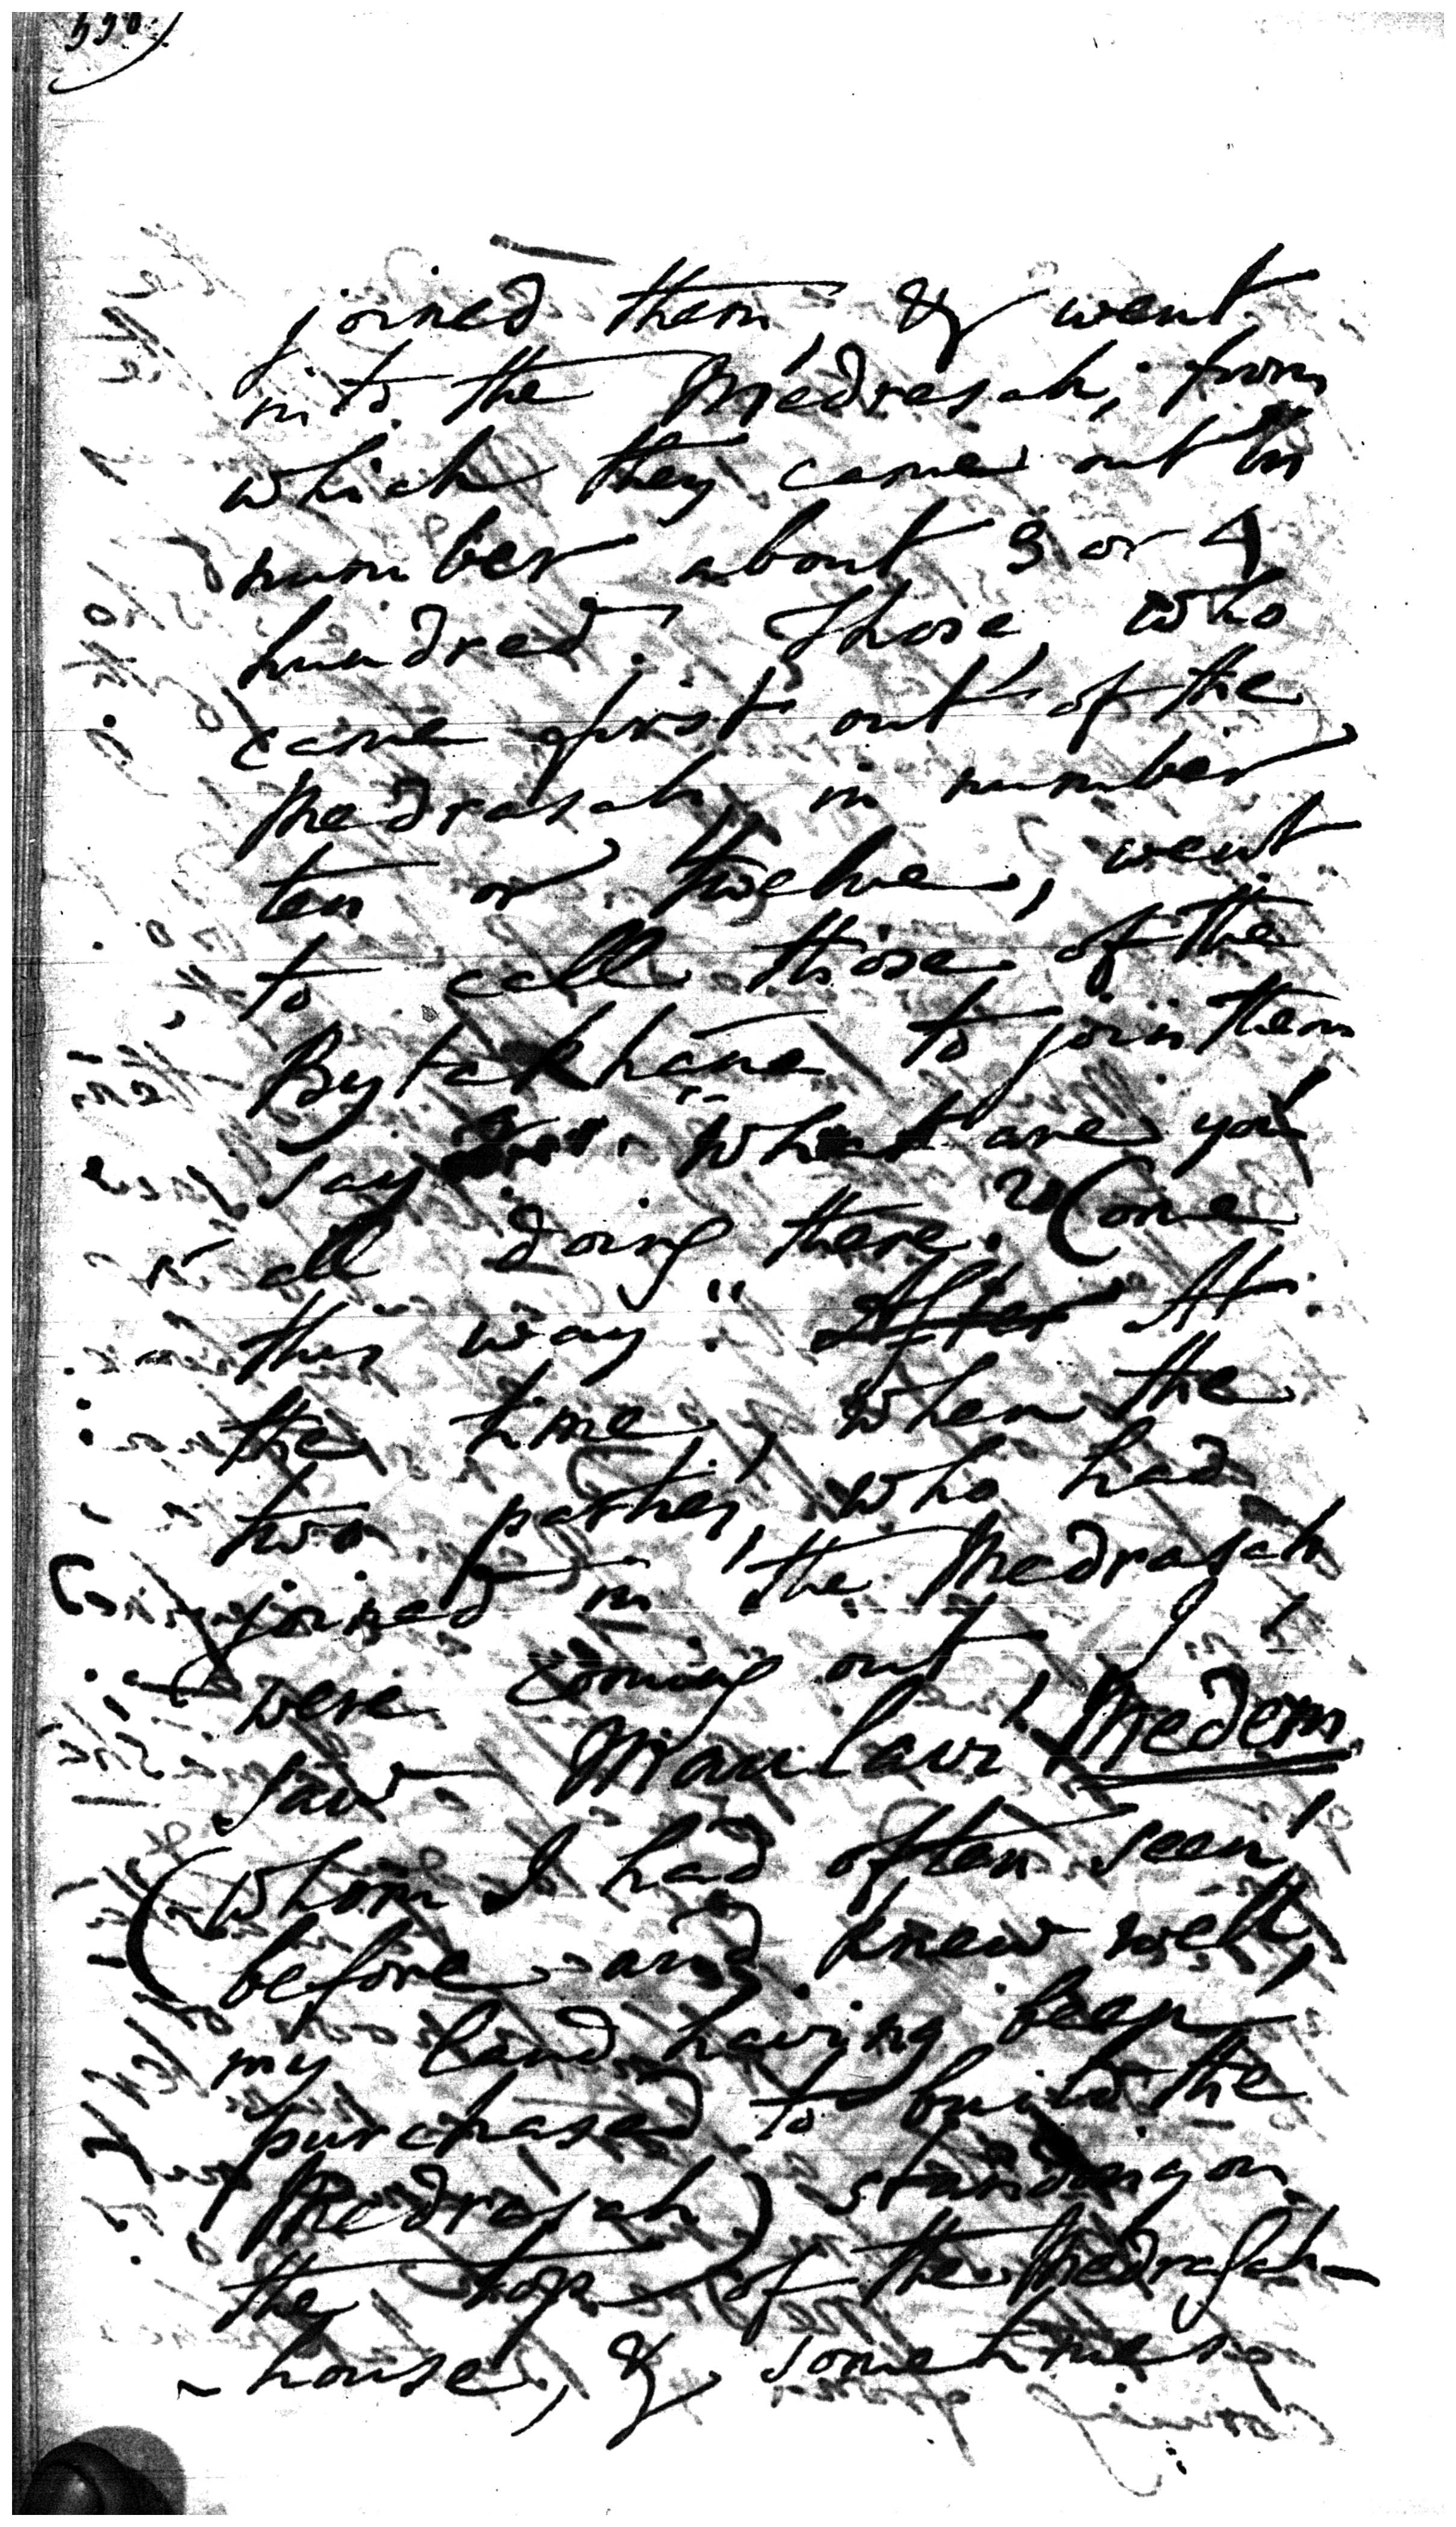 joined them, & went
into the Medresah, from
which they came out in
number about 3 or 4
hundred. Those, who
came first out of the
Medrasah, in number
ten or twelve, went
to call those of the
Bytakhána to join them
say "What are you
all doing there? Come
this way" After At
the time, when the
two parties, who had
joined in the Medrasah
were coming out, I
saw Maulavi Medem
(whom I had often seen
before and knew well,
my land having been
purchased to build the
Medrasah) standing on
the top of the Medrasah-
-house, & sometimes